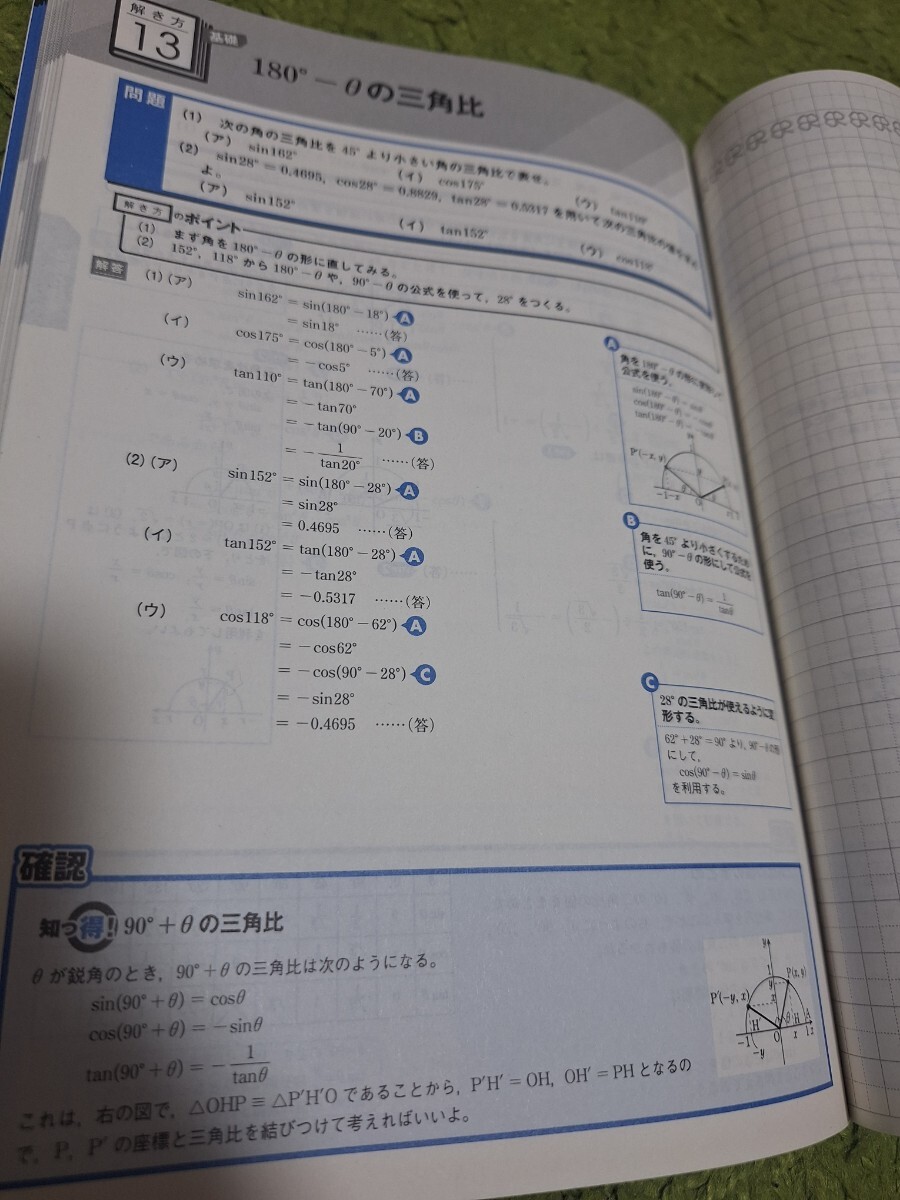 解き方
13
基礎
180°－θの三角比
問題
(1) 次の角の三角比を45°より小さい角の三角比で表せ。
(ア) sin162° (イ) cos175° (ウ) tan110°
(2) sin28°＝0.4695, cos28°＝0.8829, tan28°＝0.5317を用いて次の三角比の値を求めよ。
(ア) sin152° (イ) tan152° (ウ) cos118°
解き方のポイント
(1) まず角を180°－θの形に直してみる。
(2) 152°, 118°から180°－θや, 90°－θの公式を使って, 28°をつくる。
解答
(1)(ア) sin162°＝sin(180°－18°) A
＝sin18° ……(答)
(イ) cos175°＝cos(180°－5°) A
＝－cos5° ……(答)
(ウ) tan110°＝tan(180°－70°) A
＝－tan70°
＝－tan(90°－20°) B
＝－1/tan20° ……(答)
(2)(ア) sin152°＝sin(180°－28°) A
＝sin28°
＝0.4695 ……(答)
(イ) tan152°＝tan(180°－28°) A
＝－tan28°
＝－0.5317 ……(答)
(ウ) cos118°＝cos(180°－62°) A
＝－cos62°
＝－cos(90°－28°) C
＝－sin28°
＝－0.4695 ……(答)
A
角を180°－θの形に
公式を使う。
sin(180°－θ)＝sinθ
cos(180°－θ)＝－cosθ
tan(180°－θ)＝－tanθ
P'(－x, y)
－1 －x O
B
角を45°より小さくするため
に, 90°－θの形にして公式を
使う。
tan(90°－θ)＝1/tanθ
C
28°の三角比が使えるように変
形する。
62°＋28°＝90°より, 90°－θの形
にして,
cos(90°－θ)＝sinθ
を利用する。
確認
知っ得! 90°＋θの三角比
θが鋭角のとき, 90°＋θの三角比は次のようになる。
sin(90°＋θ)＝cosθ
cos(90°＋θ)＝－sinθ
tan(90°＋θ)＝－1/tanθ
これは, 右の図で, △OHP≡△P'H'Oであることから, P'H'＝OH, OH'＝PHとなるの
で, P, P'の座標と三角比を結びつけて考えればいいよ。
y
1
P(x, y)
P'(－y, x)
y
x
H' θ H A
－1 O x 1 x
－y